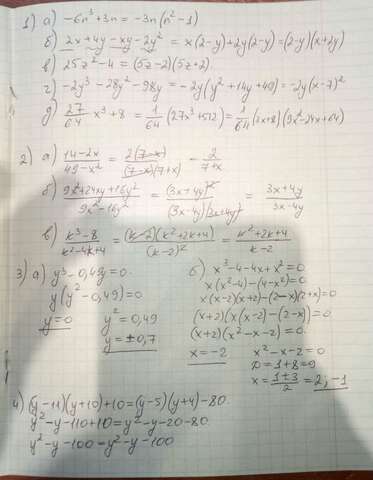 1) а) -6n³+3n = -3n(n²-1)
б) 2x+4y-xy-2y² = x(2-y)+2y(2-y)=(2-y)(x+2y)
в) 25z²-4=(5z-2)(5z+2)
г) -2y³-28y²-98y = -2y(y²+14y+49)=-2y(x-7)²
д) 27/64 x³+8 = 1/64 (27x³+512)= 1/64 (3x+8)(9x²-24x+64)
2) а) 14-2x/49-x² = 2(7-x)/(7-x)(7+x) = 2/7+x
б) 9x²+24xy+16y²/9x²-16y² = (3x+4y)²/(3x-4y)(3x+4y) = 3x+4y/3x-4y
в) k³-8/k²-4k+4 = (k-2)(k²+2k+4)/(k-2)² = k²+2k+4/k-2
3) а) y³-0,49y=0.
y(y²-0,49)=0
y=0 y²=0,49
y=±0,7
б) x³-4-4x+x²=0
x(x²-4)-(4-x²)=0
x(x-2)(x+2)-(2-x)(2+x)=0
(x+2)(x(x-2)-(2-x))=0
(x+2)(x²-x-2)=0.
x=-2 x²-x-2=0
D=1+8=9
x=1±3/2=2;-1
4) (y-11)(y+10)+10=(y-5)(y+4)-80.
y²-y-110+10=y²-y-20-80.
y²-y-100=y²-y-100